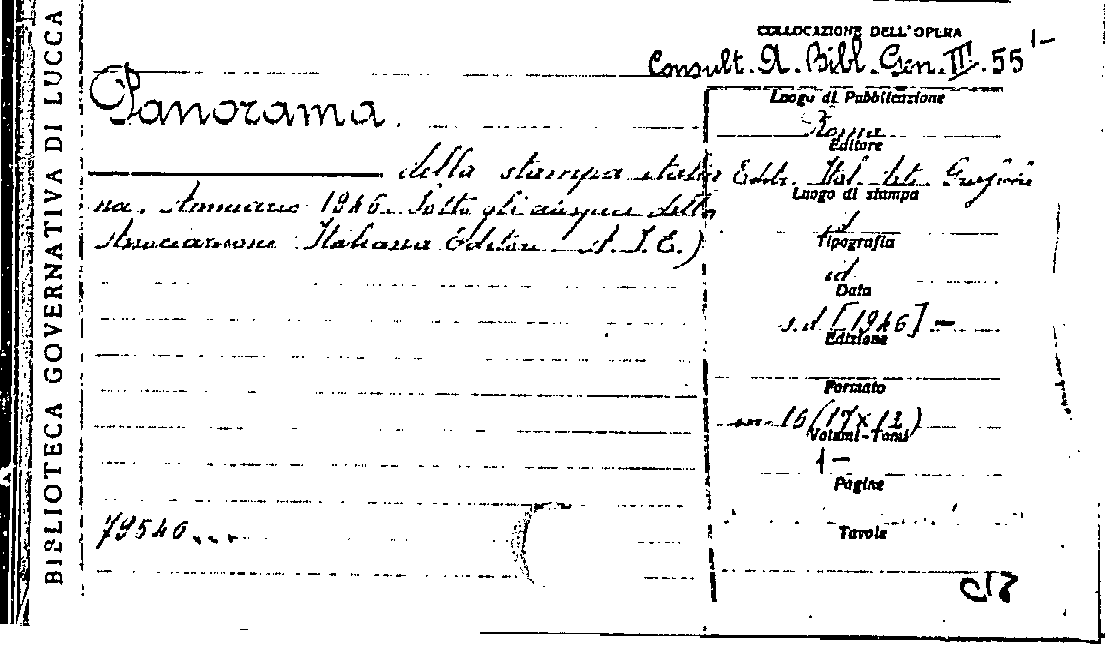 BIBLIOTECA GOVERNATIVA DI LUCCA
COLLOCAZIONE DELL'OPERA
Consult. A. Bibl. Gen. III. 55
Panorama.
della stampa italia
na. Annuario 1946. Sotto gli auspici della
Associazione Italiana Editori A. I. E.)
79540
Luogo di Pubblicazione
Roma
Editore
Editr. Ital. Arte
Luogo di stampa
id
Tipografia
id
Data
s.d [1946] -
Edizione
Formato
16 (17x12)
Volumi-Tomi
1-
Pagine
Tavole